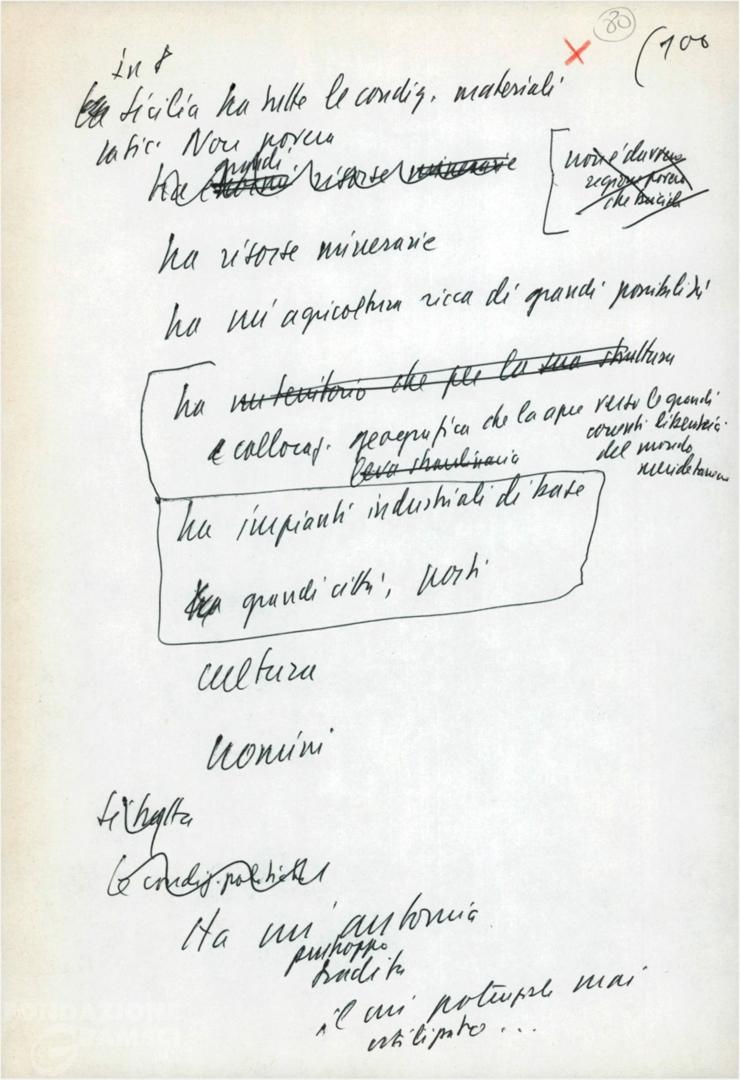 80
(100
in 8
La Sicilia ha tutte le condiz. materiali
Non povera
grandi
ha risorse minerarie
non è davvero
regione povera
che
ha risorse minerarie
ha un'agricoltura ricca di grandi possibilità
ha un territorio che per la sua struttura
e collocaz. geografica che la apre verso le grandi
correnti
del mondo
mediterraneo
leva straordinaria
ha impianti industriali di base
ha grandi città, porti
cultura
uomini
si tratta
le condiz. politiche
Ha un'autonomia
purtroppo
tradita
il cui potenziale mai
utilizzato...
FONDAZIONE
GRAMSCI